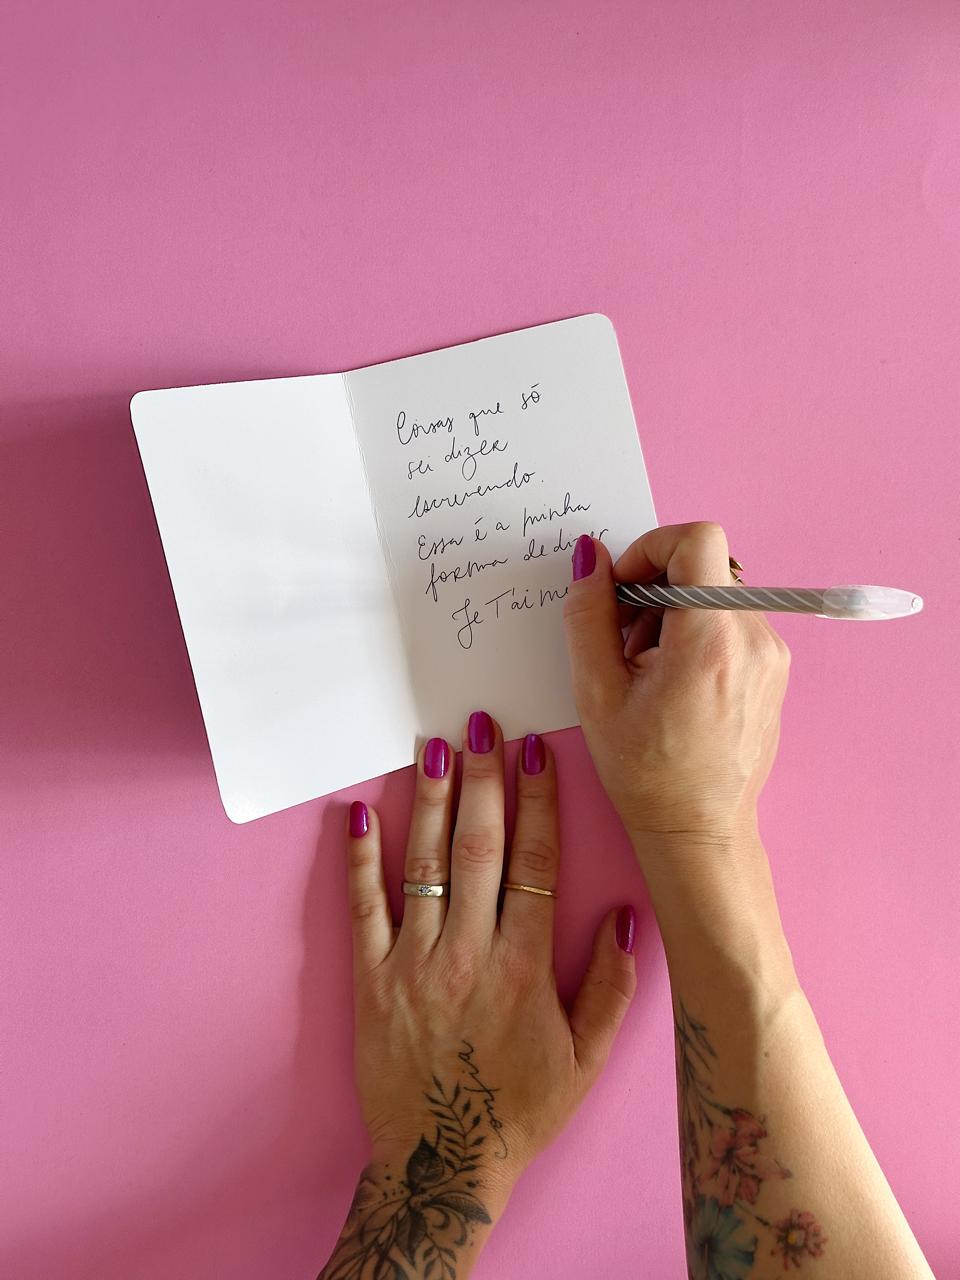 Coisas que só
sei dizer
escrevendo.
Essa é a minha
forma de dizer
Je T'aime
confia